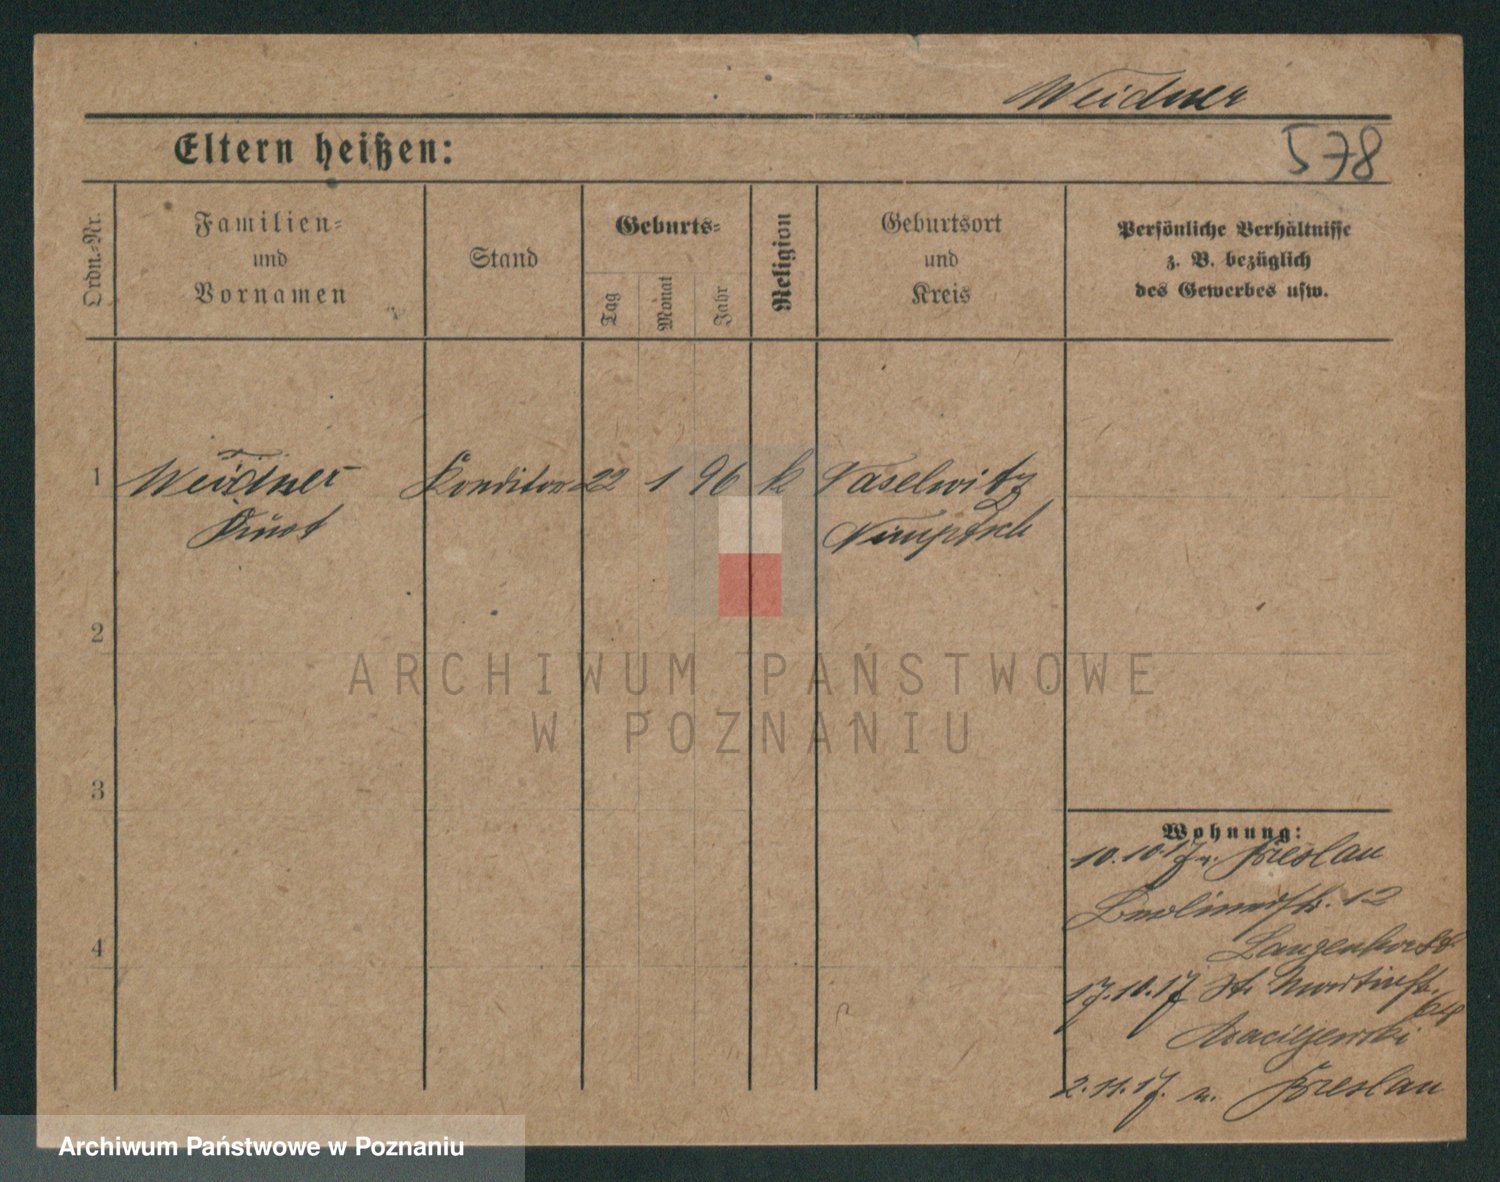 Weidner
Eltern heißen:
578
Ordn.-Nr.
Familien-
und
Vornamen
Stand
Geburts-
Tag
Monat
Jahr
Religion
Geburtsort
und
Kreis
Persönliche Verhältnisse
z. B. bezüglich
des Gewerbes usw.
1
Weidner
Konditor
22
1
96
k
Vaselwitz
Kurt
Nimptsch
2
ARCHIWUM PAŃSTWOWE
W POZNANIU
3
Wohnung:
10.10.17 n. Breslau
Berlinerstr. 12
4
17.10.17 St. Martinstr.
64
2.11.17. n. Breslau
Archiwum Państwowe w Poznaniu